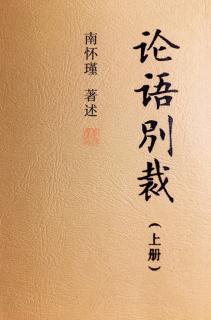 论语别裁
(上册)
南怀瑾 著述